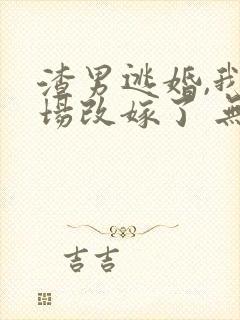 渣男逃婚,我
场改嫁了 无
吉吉